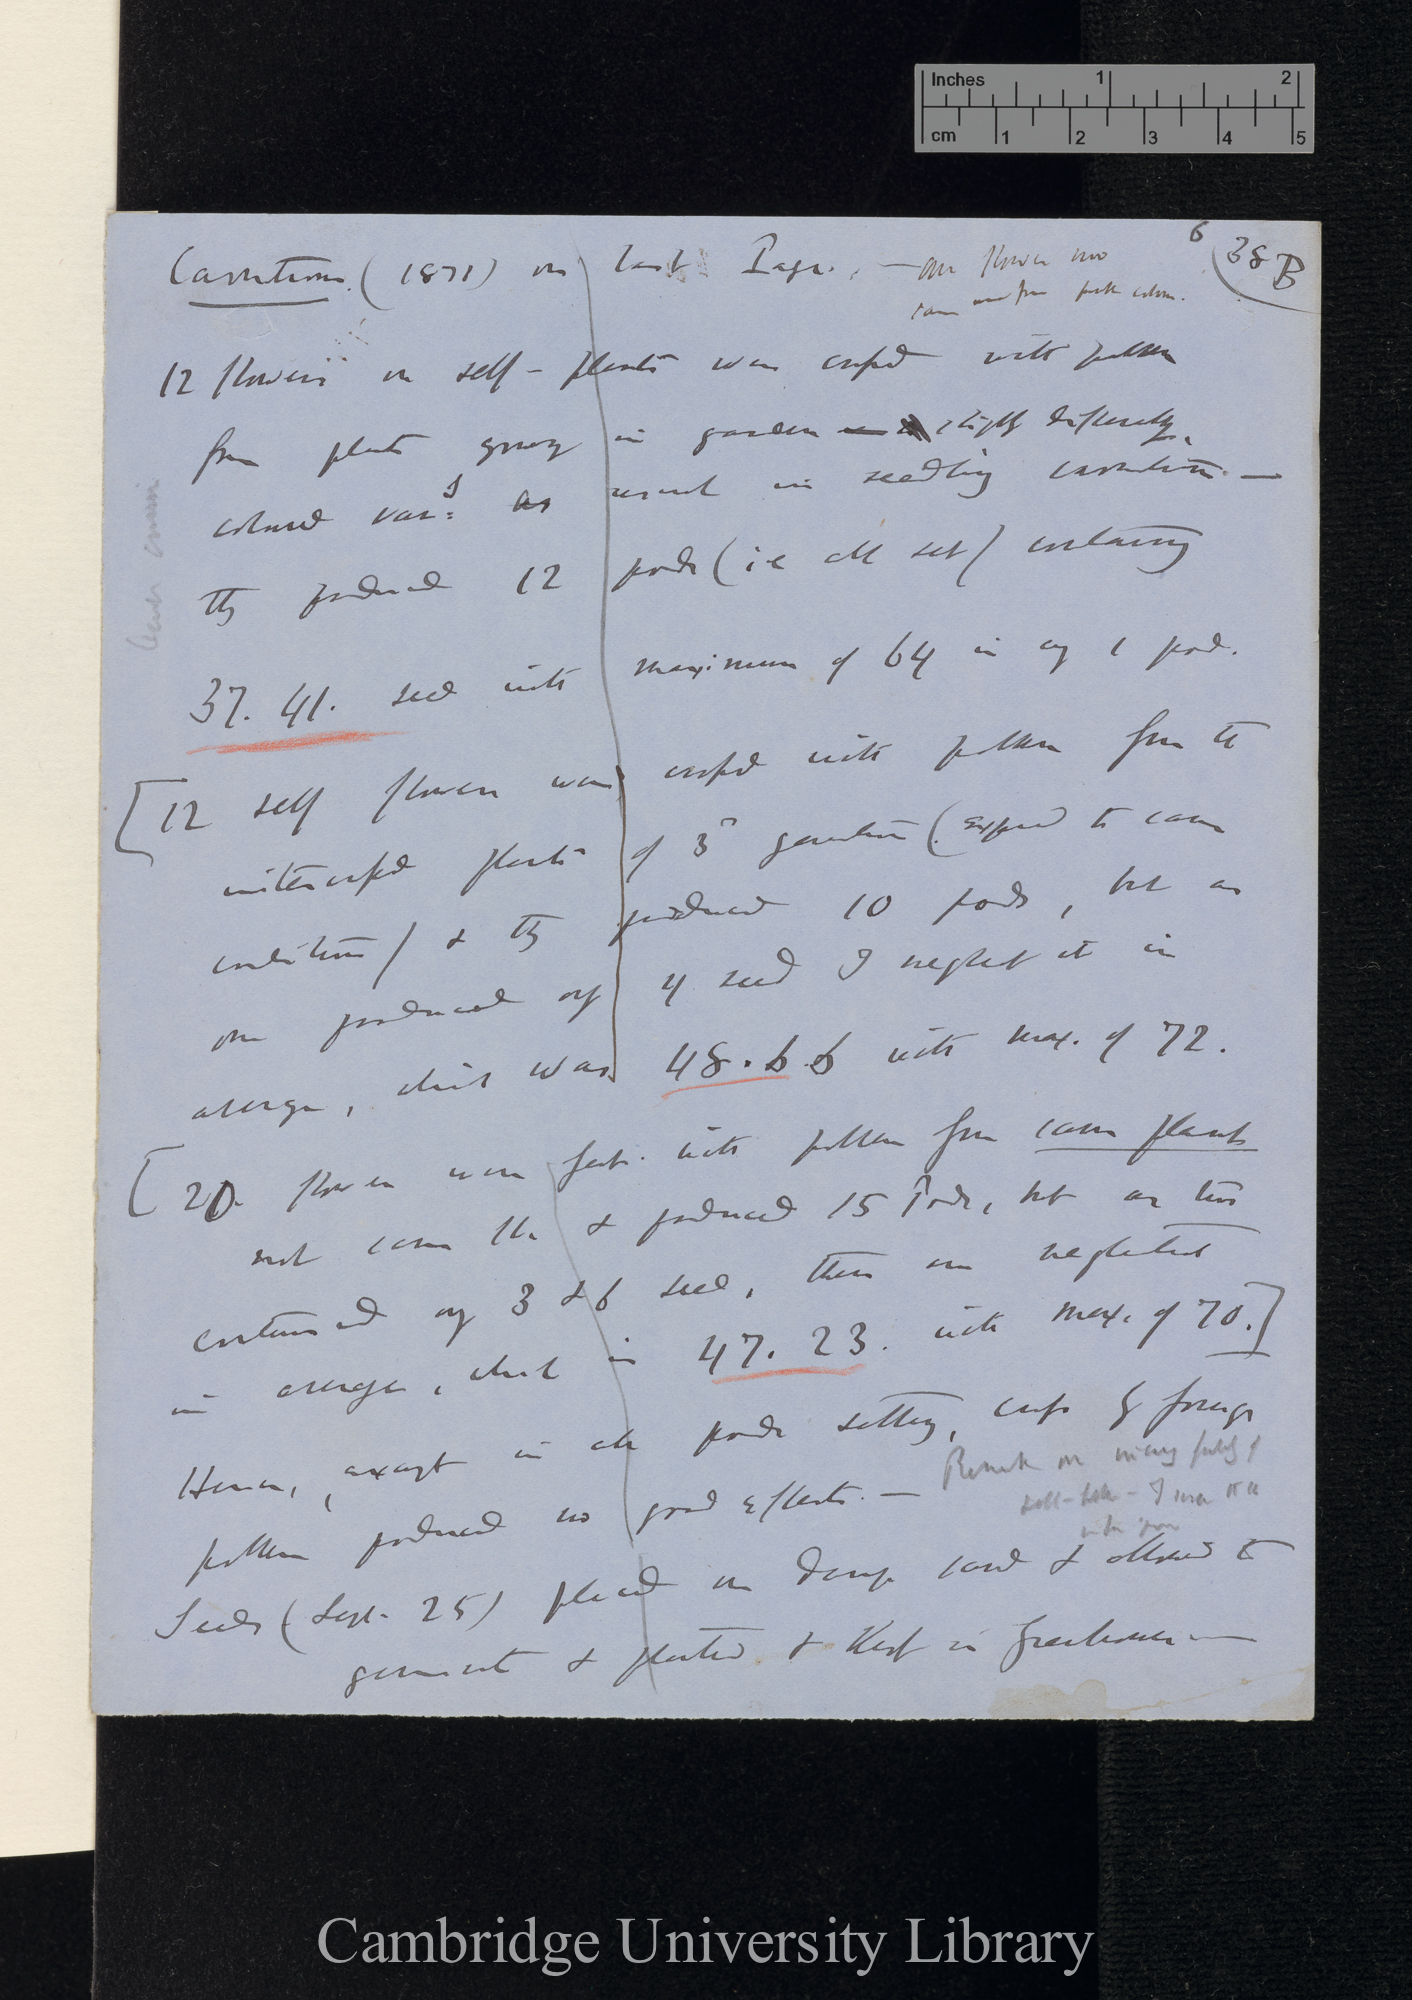 Inches 1 2
cm 1 2 3 4 5
6
(38 B
Carnations. (1871) on last Page. — All flowers
same
12 flowers on self-plants were crossed with pollen
from plants growing in garden slightly differently
coloured vars as usual in seedling carnations. —
They produced 12 pods (ie all set) containing
37. 41. seed with maximum of 64 in any 1 pod.
[12 self flowers were crossed with pollen from the
intercrossed plants of 3d generation (exposed to same
conditions) & they produced 10 pods, but as
one produced only 4 seed I neglect it in
average, which was 48.66 with max. of 72.
[20 flowers were fert. with pollen from same plants
not same fl. & produced 15 Pods, but as two
contained only 3 & 6 seed, these are neglected
in average, which is 47. 23. with max. of 70.]
Hence, except in all pods setting, cross by foreign
pollen produced no good effects. —
Remark on
self- — I
Seeds (Sept. 25) placed on damp sand & allowed to
germinate & planted & kept in Greenhouse —
Cambridge University Library